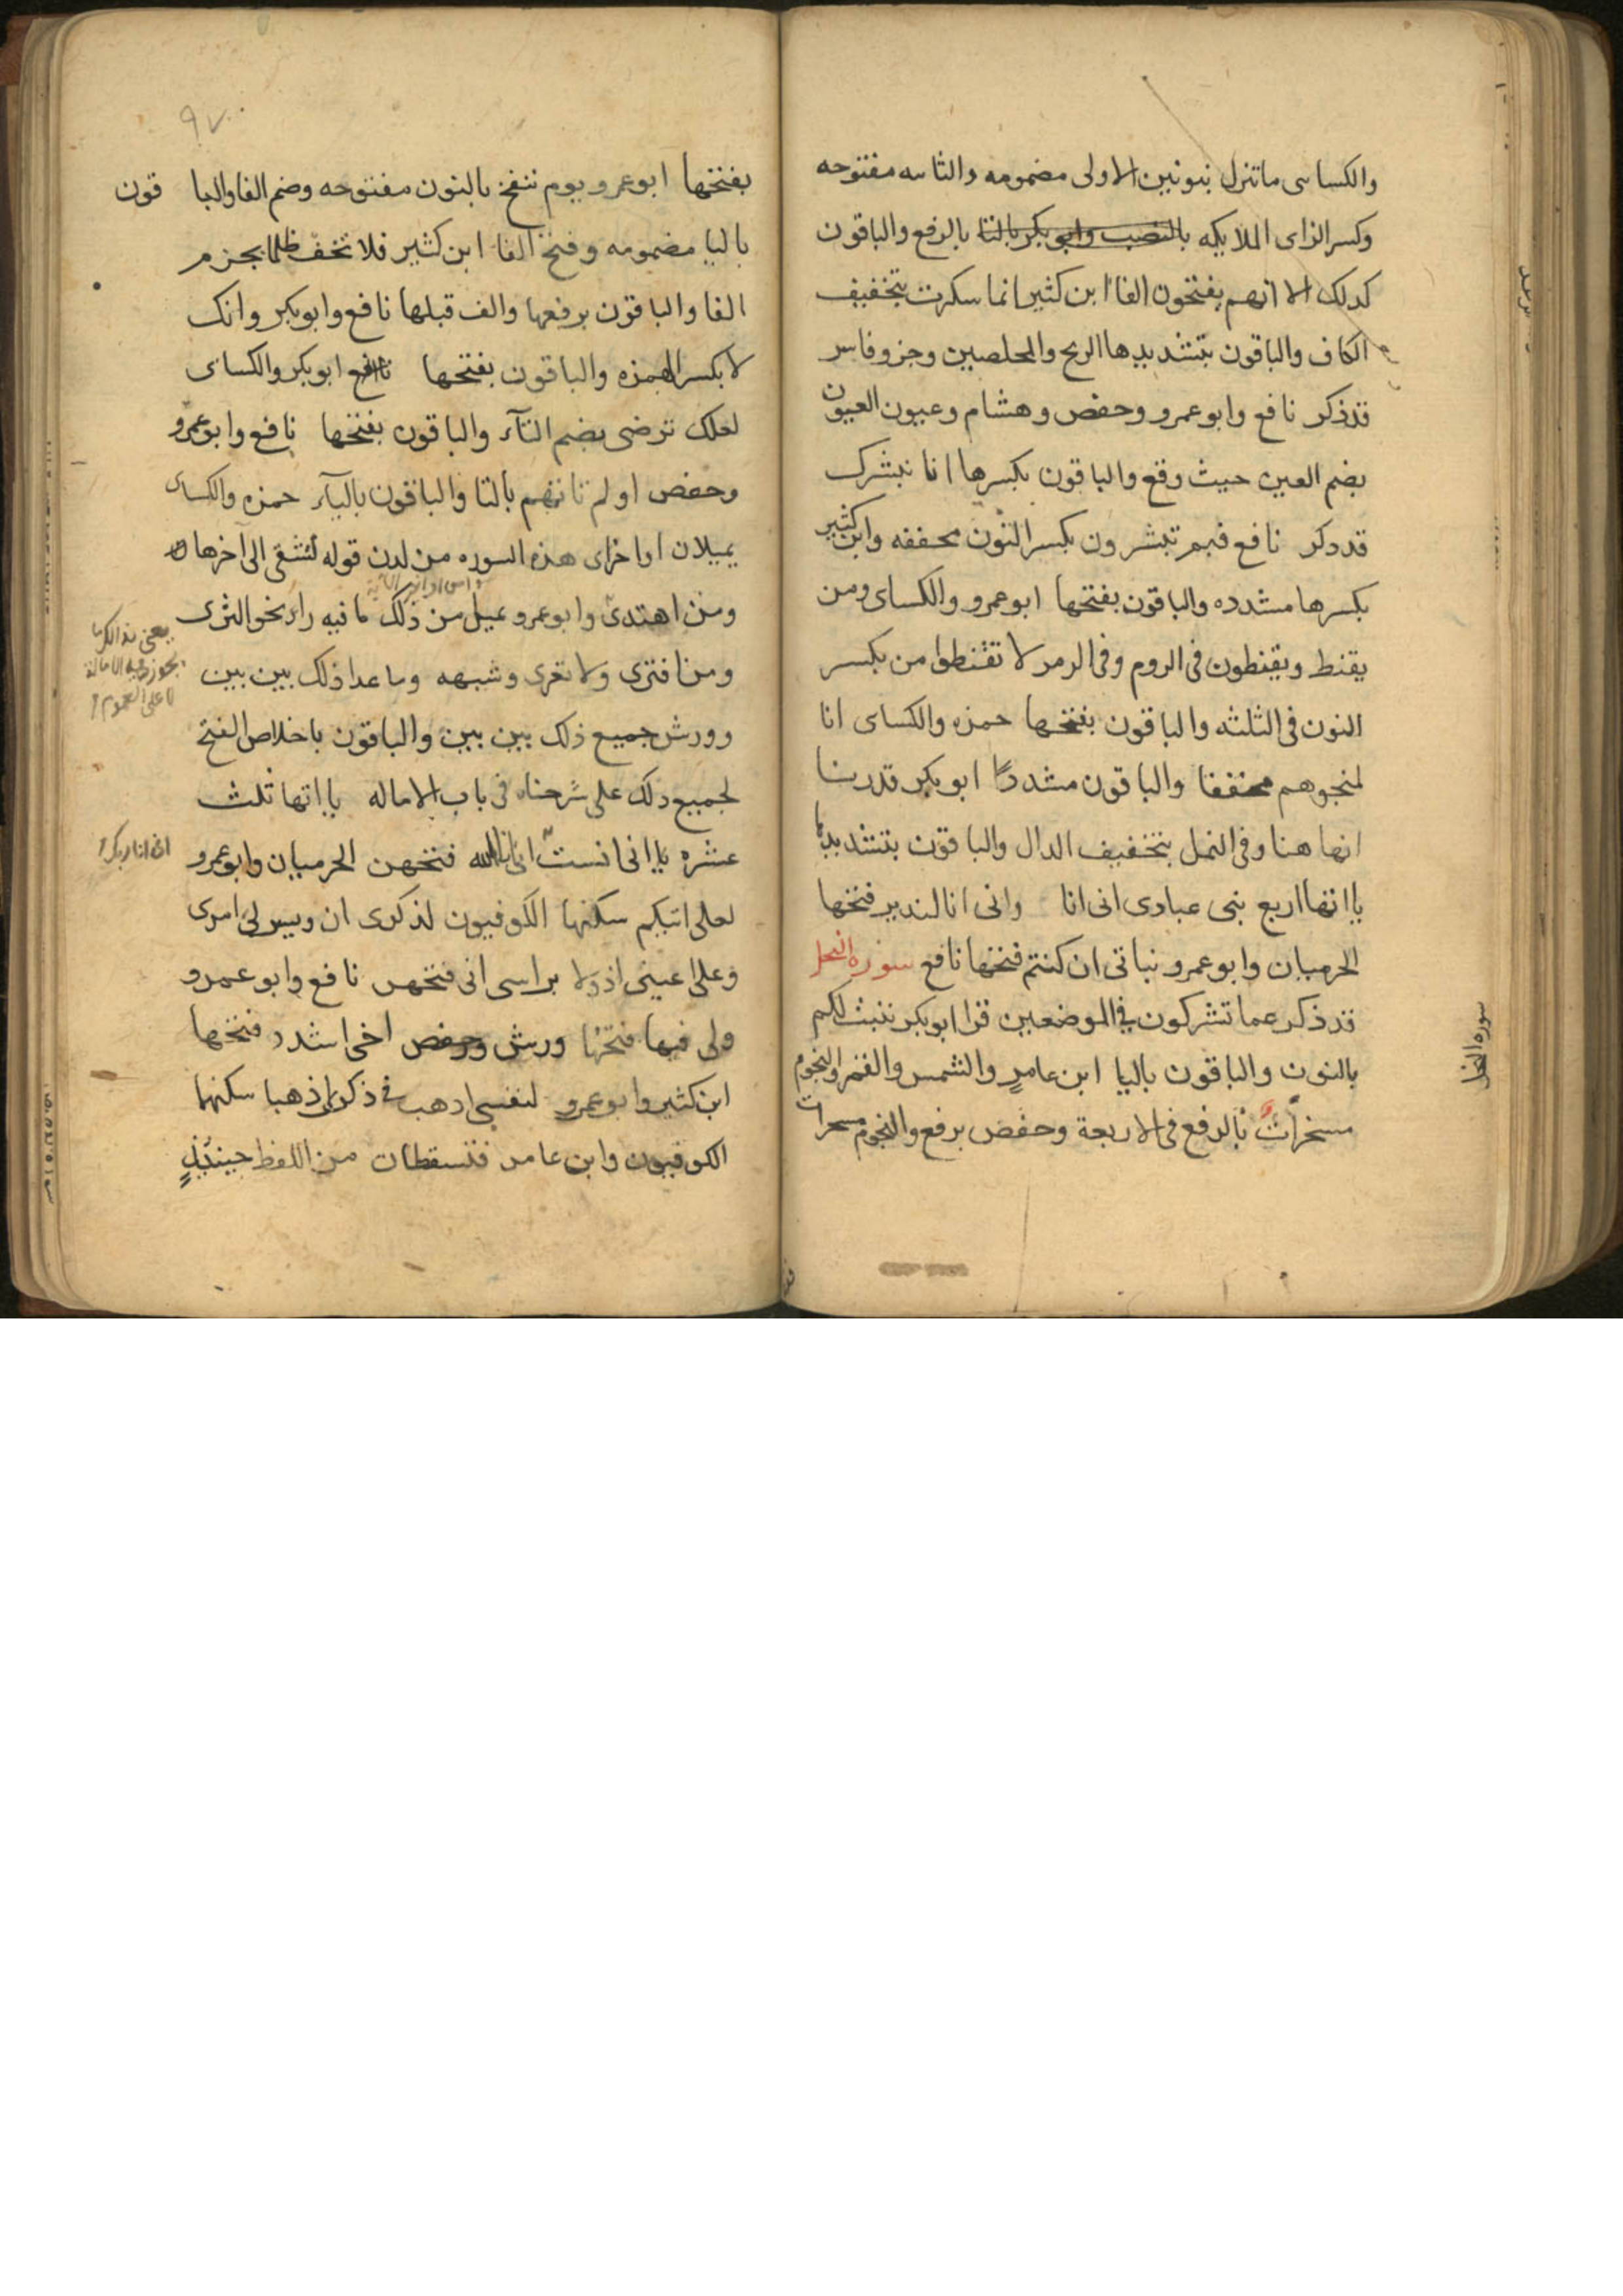 والكساى ماتنزل بنونين الاولى مضمومه والثانيه مفتوحه
وكسر الزاى الملايكه بالنصب وابو بكر بالتا بالرفع والباقون
كدلك الا انهم يفتحون الفا ابن كثير انما سكرت بتخفيف
الكاف والباقون بتشديدها الريح والمخلصين وجزو فاسر
قد ذكر نافع وابو عمرو وحفص وهشام وعيون العيون
بضم العين حيث وقع والباقون بكسرها انا نبشرك
قد دكر نافع فبم تبشرون بكسر النون مخففه وابن كثير
بكسرها مشدده والباقون بفتحها ابو عمرو والكساى ومن
يقنط ويقنطون فى الروم وفى الزمر لا تقنطوا من بكسر
النون فى الثلثه والباقون بفتحها حمزه والكساى انا
لمنجوهم مخففا والباقون مشددًا ابو بكر قدرنا
انها هنا وفى النمل بتخفيف الدال والباقون بتشديدها
يااتها اربع نبى عبادى انى انا وانى انا النذير فتحها
الحرميان وابو عمرو بناتى ان كنتم فتحها نافع سوره النحل
قد ذكر عما تشركون فى الموضعين قرا ابو بكر ننبت لكم
بالنون والباقون باليا ابن عامرٍ والشمس والقمر والنجوم
مسخراتٌ بالرفع فى الاربعة وحفص برفع والنجوم مسخرات
سوره النحل
٩٧
بفتحها ابو عمرو يوم ننفخ بالنون مفتوحه وضم الفا والبا قون
باليا مضمومه وفتح الفا ابن كثير فلا تخف ظلما بجزم
الفا والباقون برفعها والف قبلها نافع وابو بكر وانك
لا بكسر الهمزه والباقون بفتحها ابو بكر والكساى
لعلك ترضى بضم التآء والباقون بفتحها نافع وابو عمرو
وحفص اولم تاتهم بالتا والباقون باليآء حمزه والكساى
يميلان اواخر اى هذه السوره من لدن قوله لتشقى الى آخرها
ومن اهتدى وابو عمرو يميل من ذلك ما فيه راء نحو الثرى
ومن افترى ولا تعرى وشبهه وما عدا ذلك بين بين
وورش جميع ذلك بين بين والباقون باخلاص الفتح
لجميع ذلك على شرحناه فى باب الاماله يااتها ثلث
عشره يا انى انست انى انا الله فتحهن الحرميان وابو عمرو
انى انا ربك
لعلى اتيكم سكنها الكوفيون لذكرى ان ويسر لى امرى
وعلى عينى اذ ولا براسى انى فتحهن نافع وابو عمرو
ولى فيها فتحها ورش وحفص اخى اشدد فتحها
ابن كثير وابو عمرو لنفسى اذهب فى ذكرى اذهبا سكنها
الكوفيون وابن عامر فتسقطان من اللفظ حينئذٍ